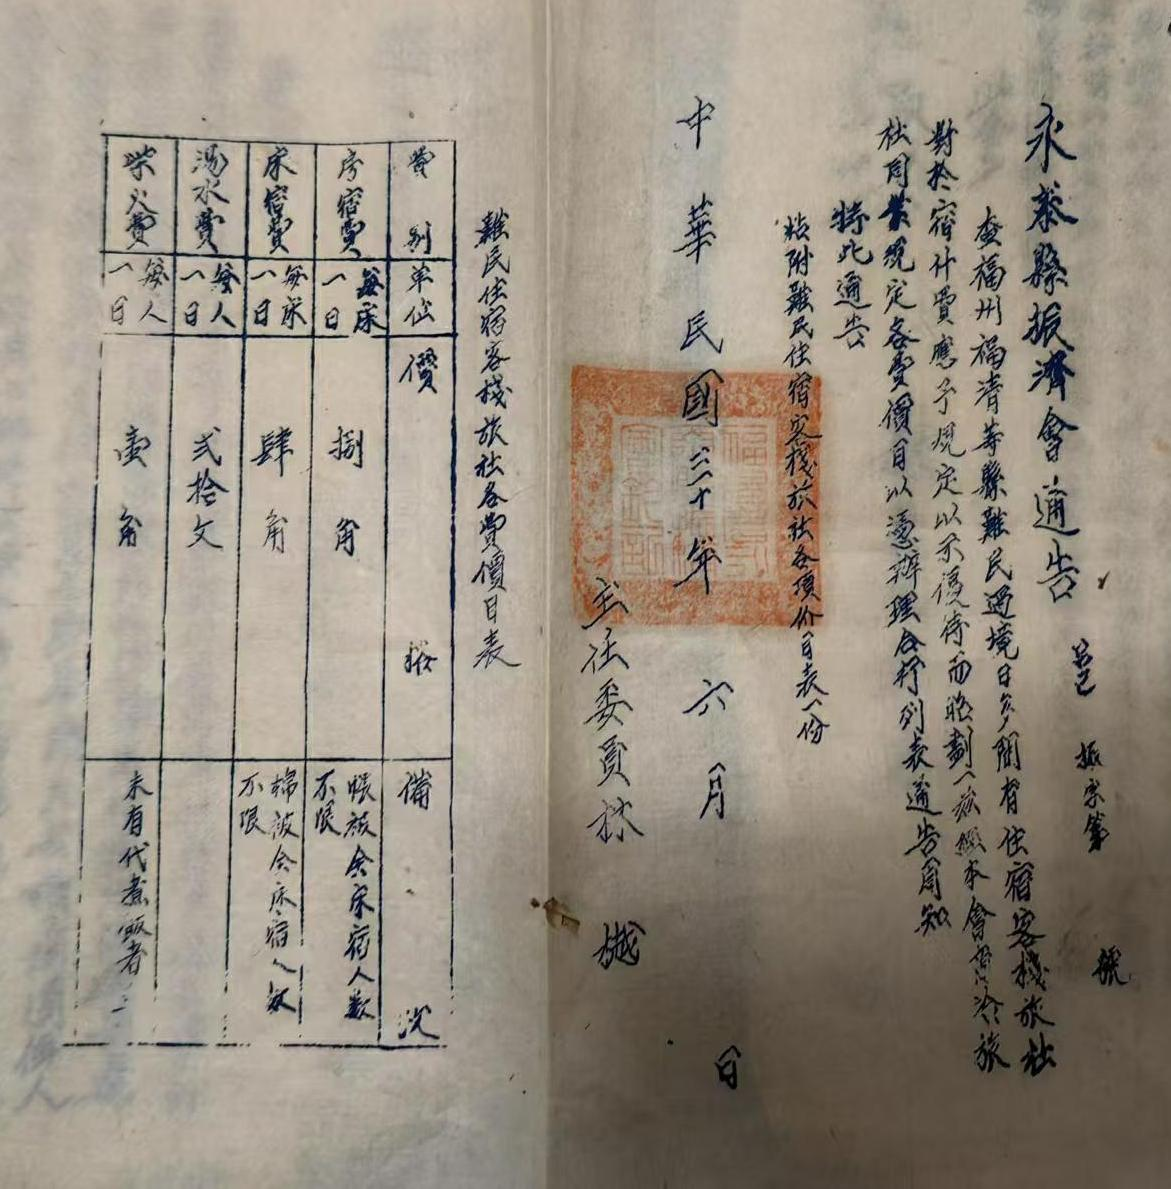 永泰縣振濟會通告
振字第 號
查福州福清等縣難民過境日多間有住宿客棧旅社
對於宿什費應予規定以示優待而昭劃一茲經本會召冷旅
社同業規定各費價目以憑辦理合行列表通告周知
特此通告
粘附難民住宿客棧旅社各項价目表一份
中華民國三十年六月 日
主任委員林樾
難民住宿客棧旅社各費價目表
費別 單位 價格 備 況
房宿費 每床一日 捌角 帳被仝床宿人数不限
床宿費 每床一日 肆角 棉被仝床宿人数不限
湯水費 每人一日 弍拾文
柴火費 每人一日 壹角 未有代煮飯者